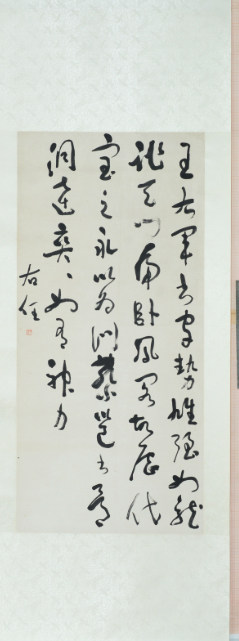 王右軍書字勢雄強如龍
跳天門虎卧鳳閣故歷代
寶之永以為訓蔡邕書骨
洞達奕〻如有神力
右任